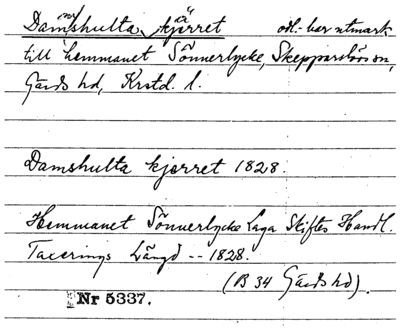 Damshulta kjärret odl.-bar utmark
till hemmanet Sönnerlycke, Skepparslövs sn,
Gärds hd, Krstd. l.
Damshulta kjerret 1828.
Hemmanet Sönnerlycke Laga Skiftes Handl.
Taxerings Längd -- 1828.
(B 34 Gärds hd).
Nr 5337.